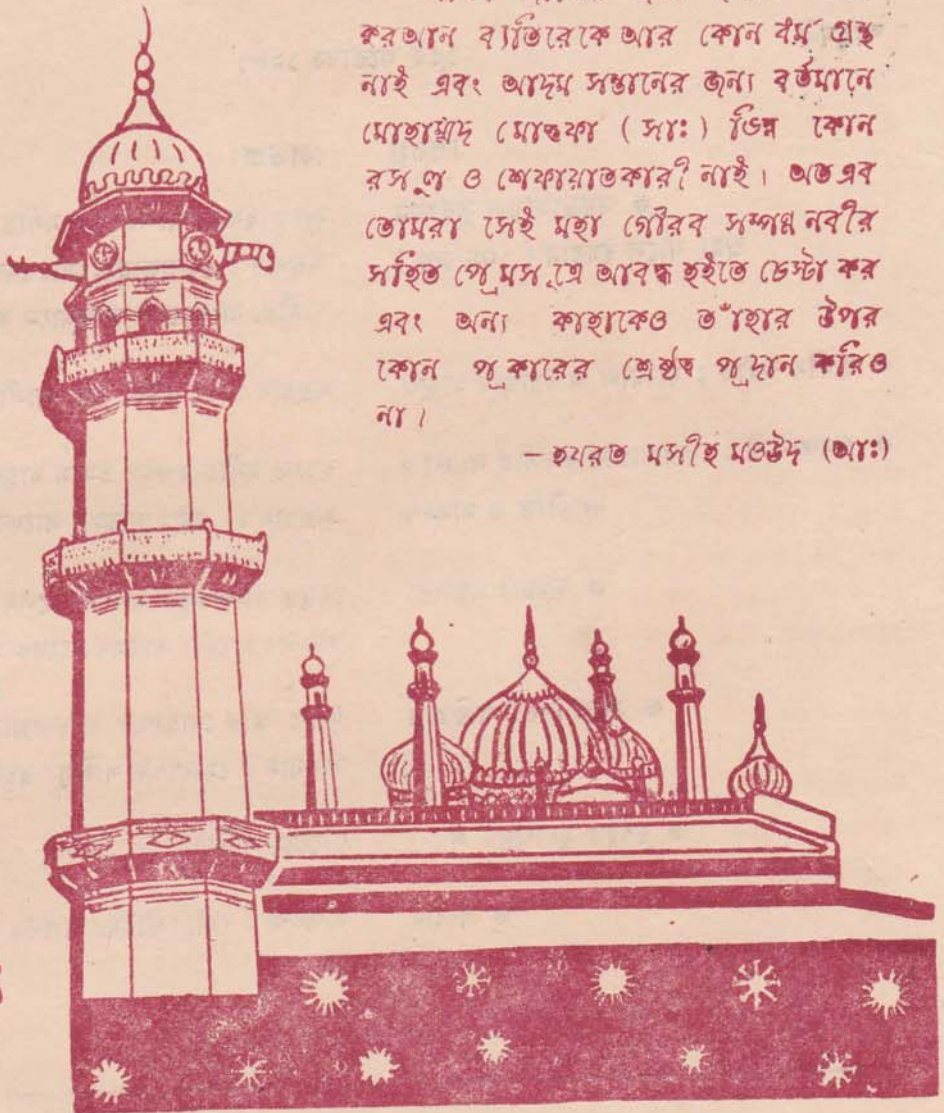 কুরআন ব্যতিরেকে আর কোন ধর্ম গ্রন্থ
নাই এবং আদম সন্তানের জন্য বর্তমানে
মোহাম্মদ মোস্তফা (সাঃ) ভিন্ন কোন
রসূল ও শেফায়াতকারী নাই। অতএব
তোমরা সেই মহা গৌরব সম্পন্ন নবীর
সহিত প্রেমসূত্রে আবদ্ধ হইতে চেস্টা কর
এবং অন্য কাহাকেও তাঁহার উপর
কোন প্রকারের শ্রেষ্ঠত্ব প্রদান করিও
না।
—হযরত মসীহ মওউদ (আঃ)